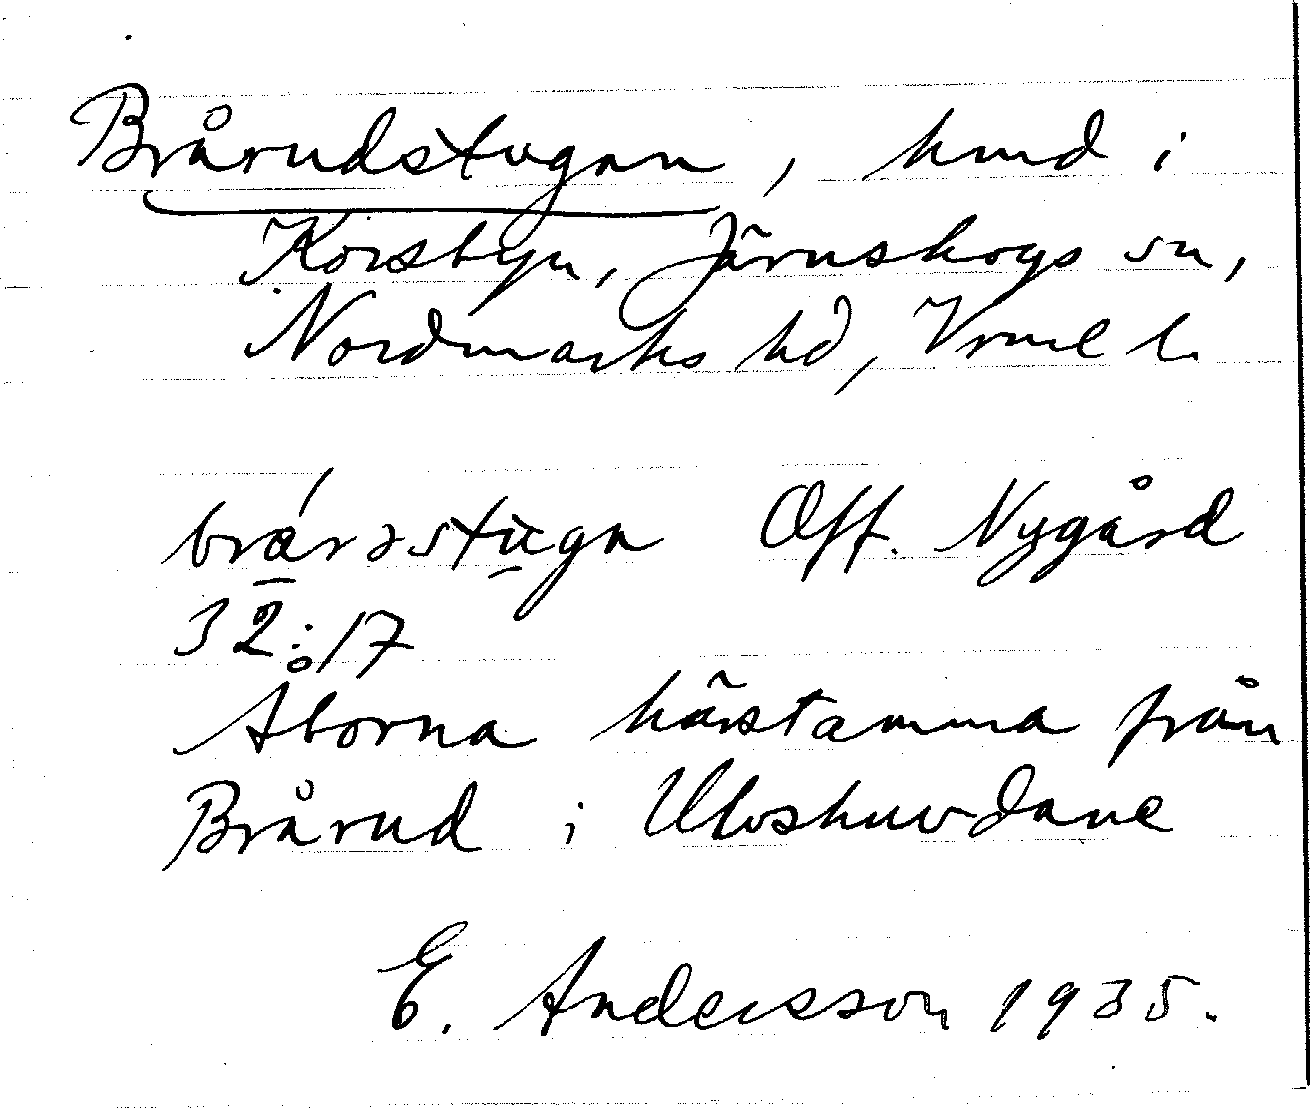 Brårudstugan, hmd i
Korsbyn, Järnskogs sn,
Nordmarks hd, Vrml l.
brárəstùgn Off. Nygård
32:17
Åborna härstamma från
Brårud i Ulvshuvdane
E. Andersson 1935.